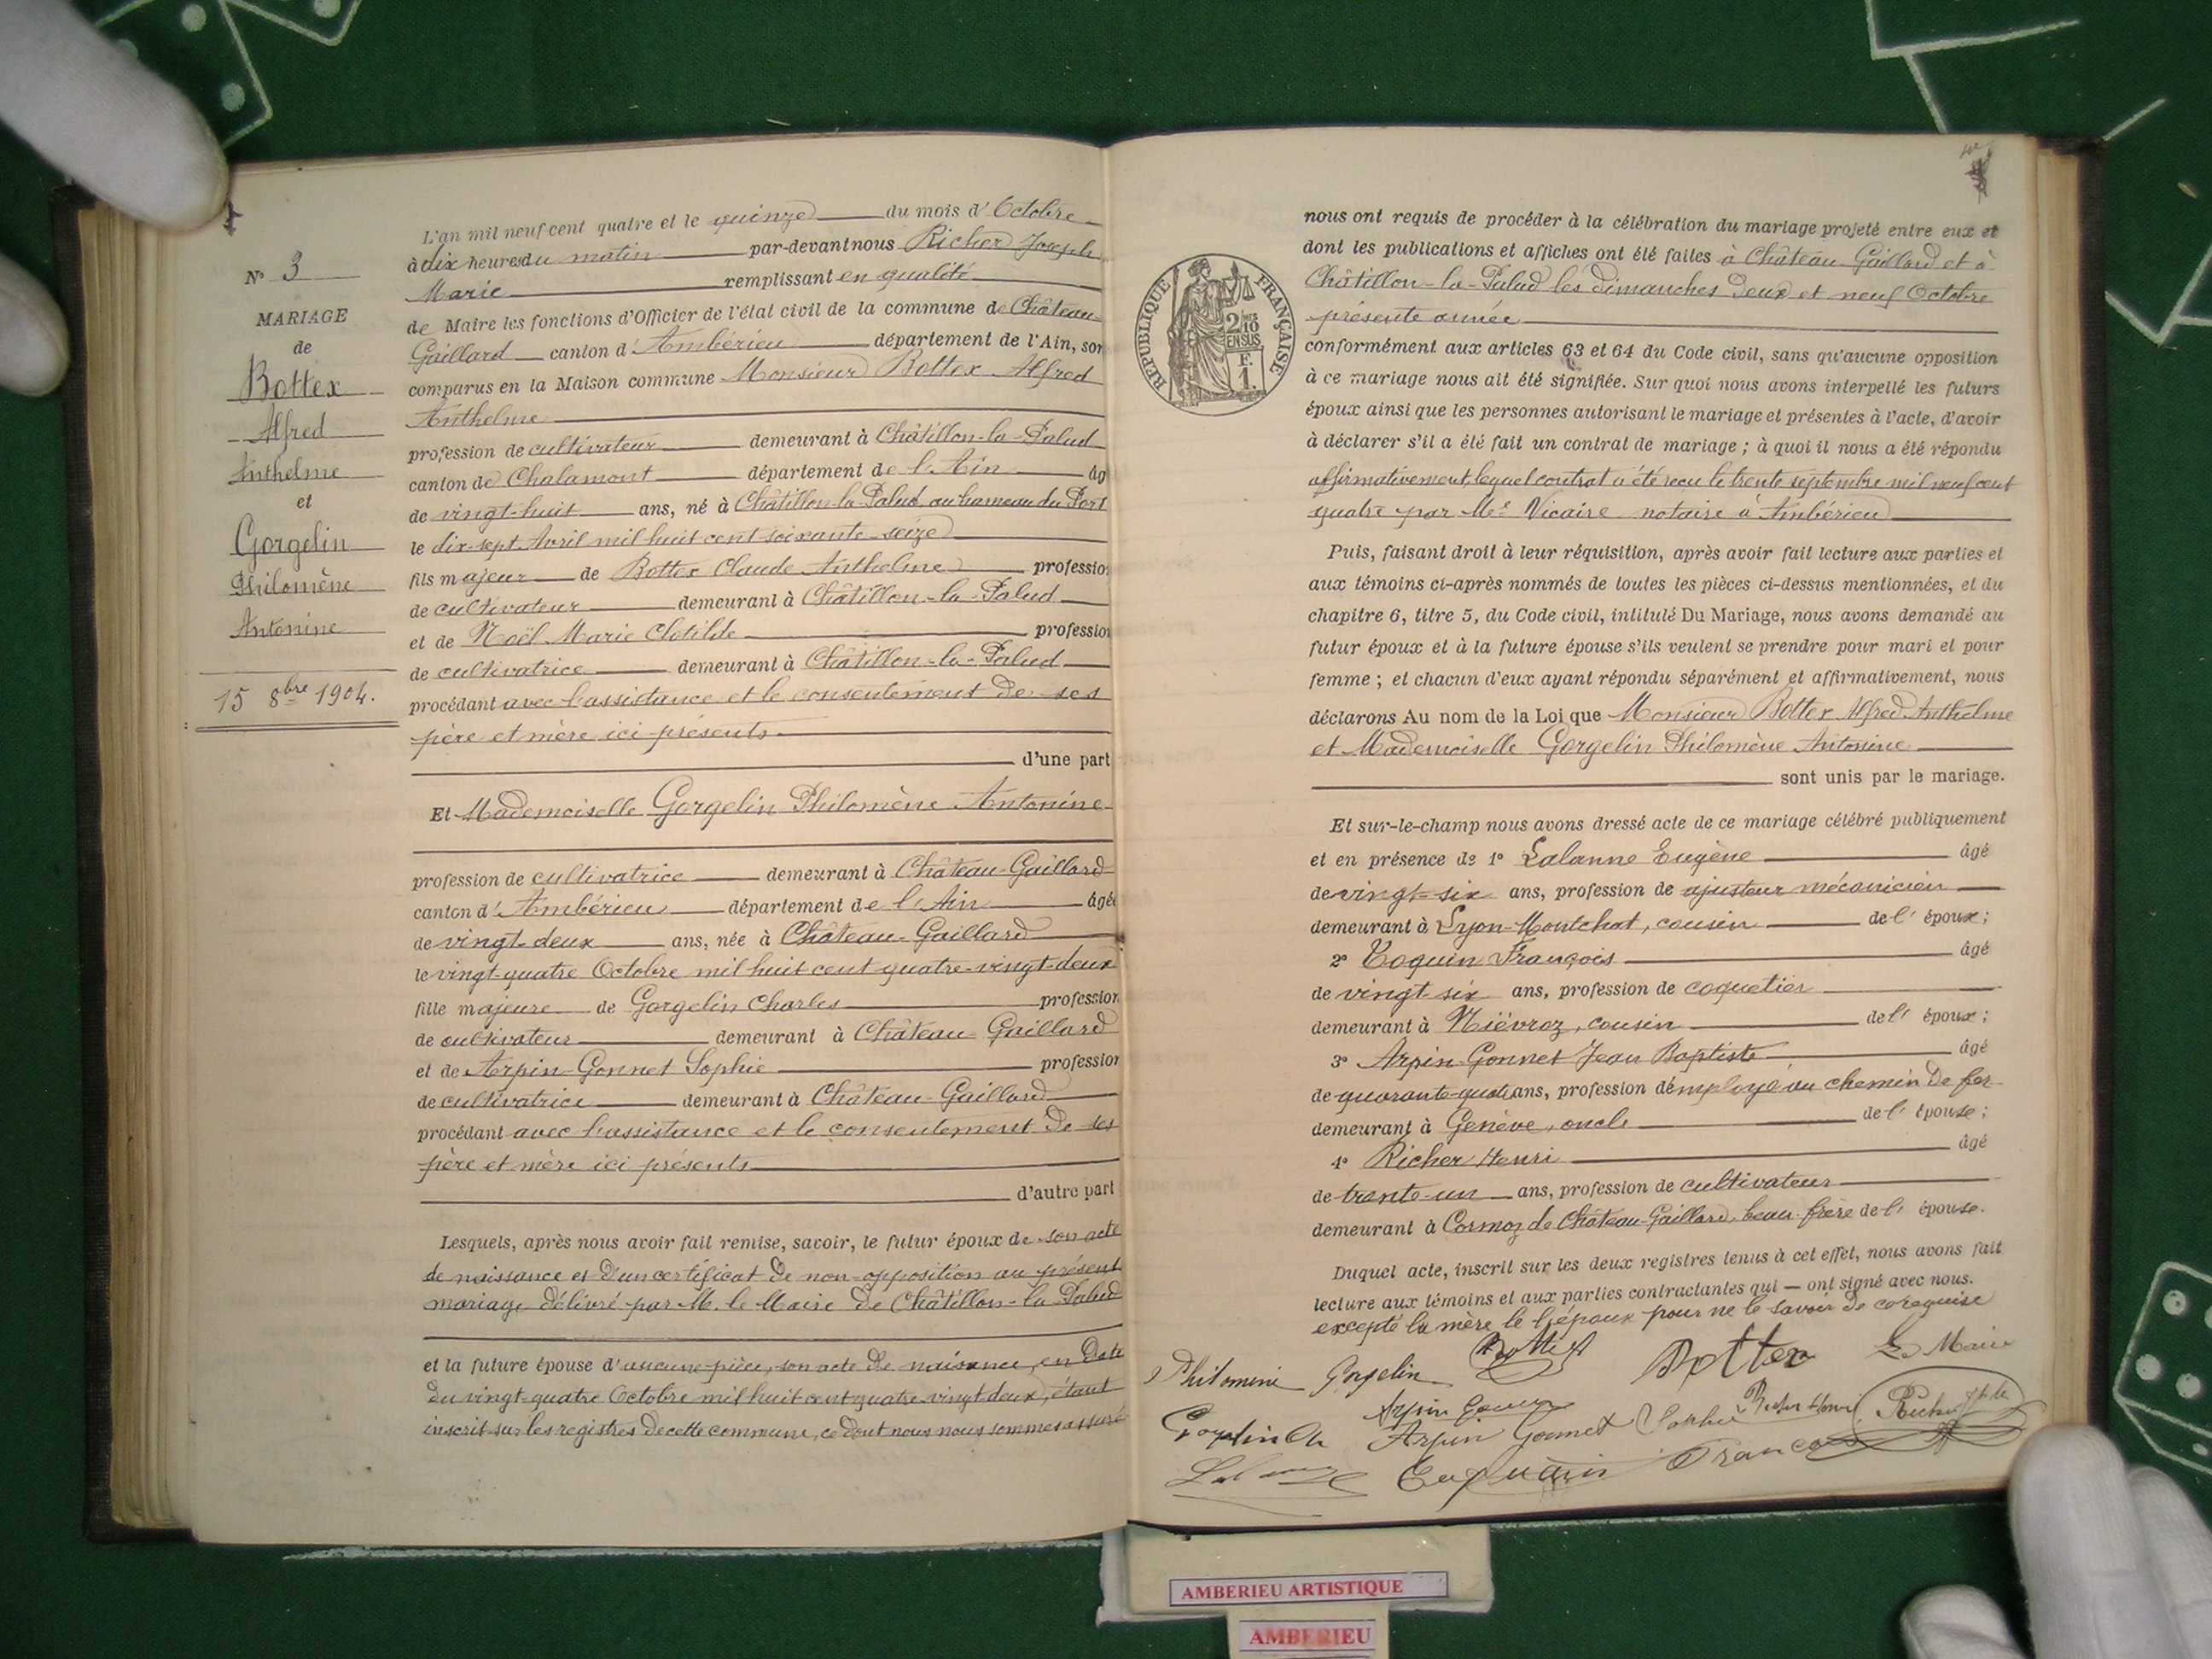 N° 3
MARIAGE
de
Bottex
Alfred
Anthelme
et
Gorgelin
Philomène
Antonine
15 8bre 1904.
L'an mil neuf cent quatre et le quinze du mois d'Octobre
à dix heures du matin par-devant nous Richer Joseph
Marie remplissant en qualité
de Maire les fonctions d'Officier de l'état civil de la commune de Château-
Gaillard canton d'Ambérieu département de l'Ain, son
comparus en la Maison commune Monsieur Bottex Alfred
Anthelme
profession de cultivateur demeurant à Châtillon-la-Palud
canton de Chalamont département de l'Ain âg
de vingt-huit ans, né à Châtillon-la-Palud, au hameau du Port
le dix-sept Avril mil huit cent soixante-seize
fils majeur de Bottex Claude Anthelme professio
de cultivateur demeurant à Châtillon-la-Palud
et de Noël Marie Clotilde profession
de cultivatrice demeurant à Châtillon-la-Palud
procédant avec l'assistance et le consentement de ses
père et mère ici présents
d'une part
Et Mademoiselle Gorgelin Philomène Antonine
profession de cultivatrice demeurant à Château-Gaillard
canton d'Ambérieu département de l'Ain âgé
de vingt-deux ans, née à Château-Gaillard
le vingt-quatre Octobre mil huit cent quatre-vingt-deux
fille majeure de Gorgelin Charles profession
de cultivateur demeurant à Château Gaillard
et de Arpin-Gonnet Sophie profession
de cultivatrice demeurant à Château-Gaillard
procédant avec l'assistance et le consentement de ses
père et mère ici présents
d'autre part
Lesquels, après nous avoir fait remise, savoir, le futur époux de son acte
de naissance et d'un certificat de non-opposition au présent
mariage délivré par M. le Maire de Châtillon-la-Palud
et la future épouse d'aucune pièce, son acte de naissance, en date
du vingt-quatre Octobre mil huit cent quatre-vingt-deux, étant
inscrit sur les registres de cette commune, ce dont nous nous sommes assuré
RÉPUBLIQUE FRANÇAISE
2/10
EN SUS
F.
1.
nous ont requis de procéder à la célébration du mariage projeté entre eux et
dont les publications et affiches ont été faites à Château-Gaillard et à
Châtillon-la-Palud les dimanches deux et neuf Octobre
présente année
conformément aux articles 63 et 64 du Code civil, sans qu'aucune opposition
à ce mariage nous ait été signifiée. Sur quoi nous avons interpellé les futurs
époux ainsi que les personnes autorisant le mariage et présentes à l'acte, d'avoir
à déclarer s'il a été fait un contrat de mariage ; à quoi il nous a été répondu
affirmativement, lequel contrat a été reçu le trente septembre mil neuf cent
quatre par Me Vicaire notaire à Ambérieu
Puis, faisant droit à leur réquisition, après avoir fait lecture aux parties et
aux témoins ci-après nommés de toutes les pièces ci-dessus mentionnées, et du
chapitre 6, titre 5, du Code civil, intitulé Du Mariage, nous avons demandé au
futur époux et à la future épouse s'ils veulent se prendre pour mari et pour
femme ; et chacun d'eux ayant répondu séparément et affirmativement, nous
déclarons Au nom de la Loi que Monsieur Bottex Alfred Anthelme
et Mademoiselle Gorgelin Philomène Antonine
sont unis par le mariage.
Et sur-le-champ nous avons dressé acte de ce mariage célébré publiquement
et en présence de 1° Lalanne Eugène âgé
de vingt-six ans, profession de ajusteur mécanicien
demeurant à Lyon-Montchat, cousin de l'époux ;
2° Coquin François âgé
de vingt six ans, profession de coquetier
demeurant à Niévroz, cousin de l'époux ;
3° Arpin-Gonnet Jean Baptiste âgé
de quarante-quatre ans, profession d'employé au chemin de fer
demeurant à Genève, oncle de l'épouse ;
4° Richer Henri âgé
de trente-un ans, profession de cultivateur
demeurant à Cormoz de Château-Gaillard, beau-frère de l'épouse.
Duquel acte, inscrit sur les deux registres tenus à cet effet, nous avons fait
lecture aux témoins et aux parties contractantes qui — ont signé avec nous.
excepté la mère de l'époux pour ne le savoir de ce requise
Philomène Gorgelin Bottex Le Maire
Gorgelin Ch Arpin Gonnet Sophie Richer Henri Richer
François
AMBERIEU ARTISTIQUE
AMBERIEU